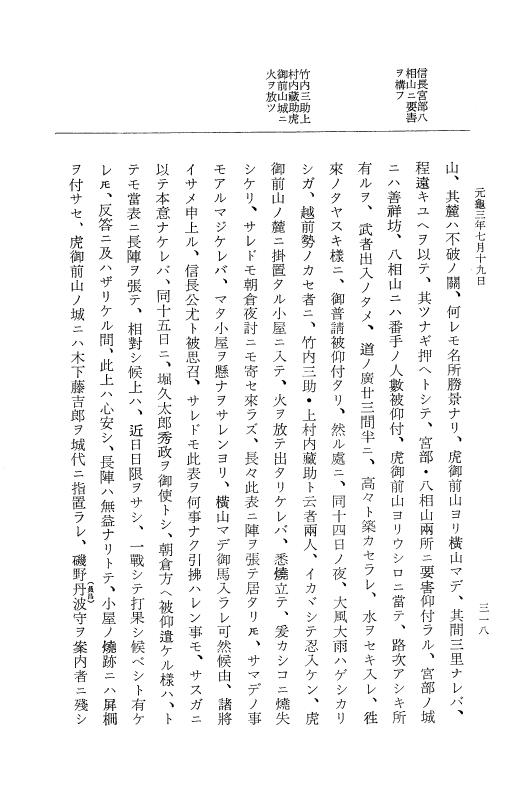 元龜三年七月十九日
三一八
信長宮部八
相山ニ要害
ヲ構フ
竹内三助上
村内藏助虎
御前山城ニ
火ヲ放ツ
山、其麓ハ不破ノ關、何レモ名所勝景ナリ、虎御前山ヨリ橫山マデ、其間三里ナレバ、
程遠キユヘヲ以テ、其ツナギ押ヘトシテ、宮部・八相山兩所ニ要害仰付ラル、宮部ノ城
ニハ善祥坊、八相山ニハ番手ノ人數被仰付、虎御前山ヨリウシロニ當テ、路次アシキ所
有ルヲ、武者出入ノタメ、道ノ廣廿三間半ニ、高々ト築カセラレ、水ヲセキ入レ、徃
來ノタヤスキ樣ニ、御普請被仰付タリ、然ル處ニ、同十四日ノ夜、大風大雨ハゲシカリ
シガ、越前勢ノカセ者ニ、竹内三助・上村内藏助ト云者兩人、イカヾシテ忍入ケン、虎
御前山ノ麓ニ掛置タル小屋ニ入テ、火ヲ放テ出タリケレバ、悉燒立テ、爰カシコニ燒失
シケリ、サレドモ朝倉夜討ニモ寄セ來ラズ、長々此表ニ陣ヲ張テ居タリ𪜈、サマデノ事
モアルマジケレバ、マタ小屋ヲ懸ナヲサレンヨリ、橫山マデ御馬入ラレ可然候由、諸將
イサメ申上ル、信長公尤ト被思召、サレドモ此表ヲ何事ナク引拂ハレン事モ、サスガニ
以テ本意ナケレバ、同十五日ニ、堀久太郎秀政ヲ御使トシ、朝倉方ヘ被仰遣ケル樣ハ、ト
テモ當表ニ長陣ヲ張テ、相對シ候上ハ、近日日限ヲサシ、一戰シテ打果シ候ベシト有ケ
レ𪜈、反答ニ及ハザリケル間、此上ハ心安シ、長陣ハ無益ナリトテ、小屋ノ燒跡ニハ屛柵
ヲ付サセ、虎御前山ノ城ニハ木下藤吉郎ヲ城代ニ指置ラレ、磯野丹波守(員昌)ヲ案内者ニ殘シ